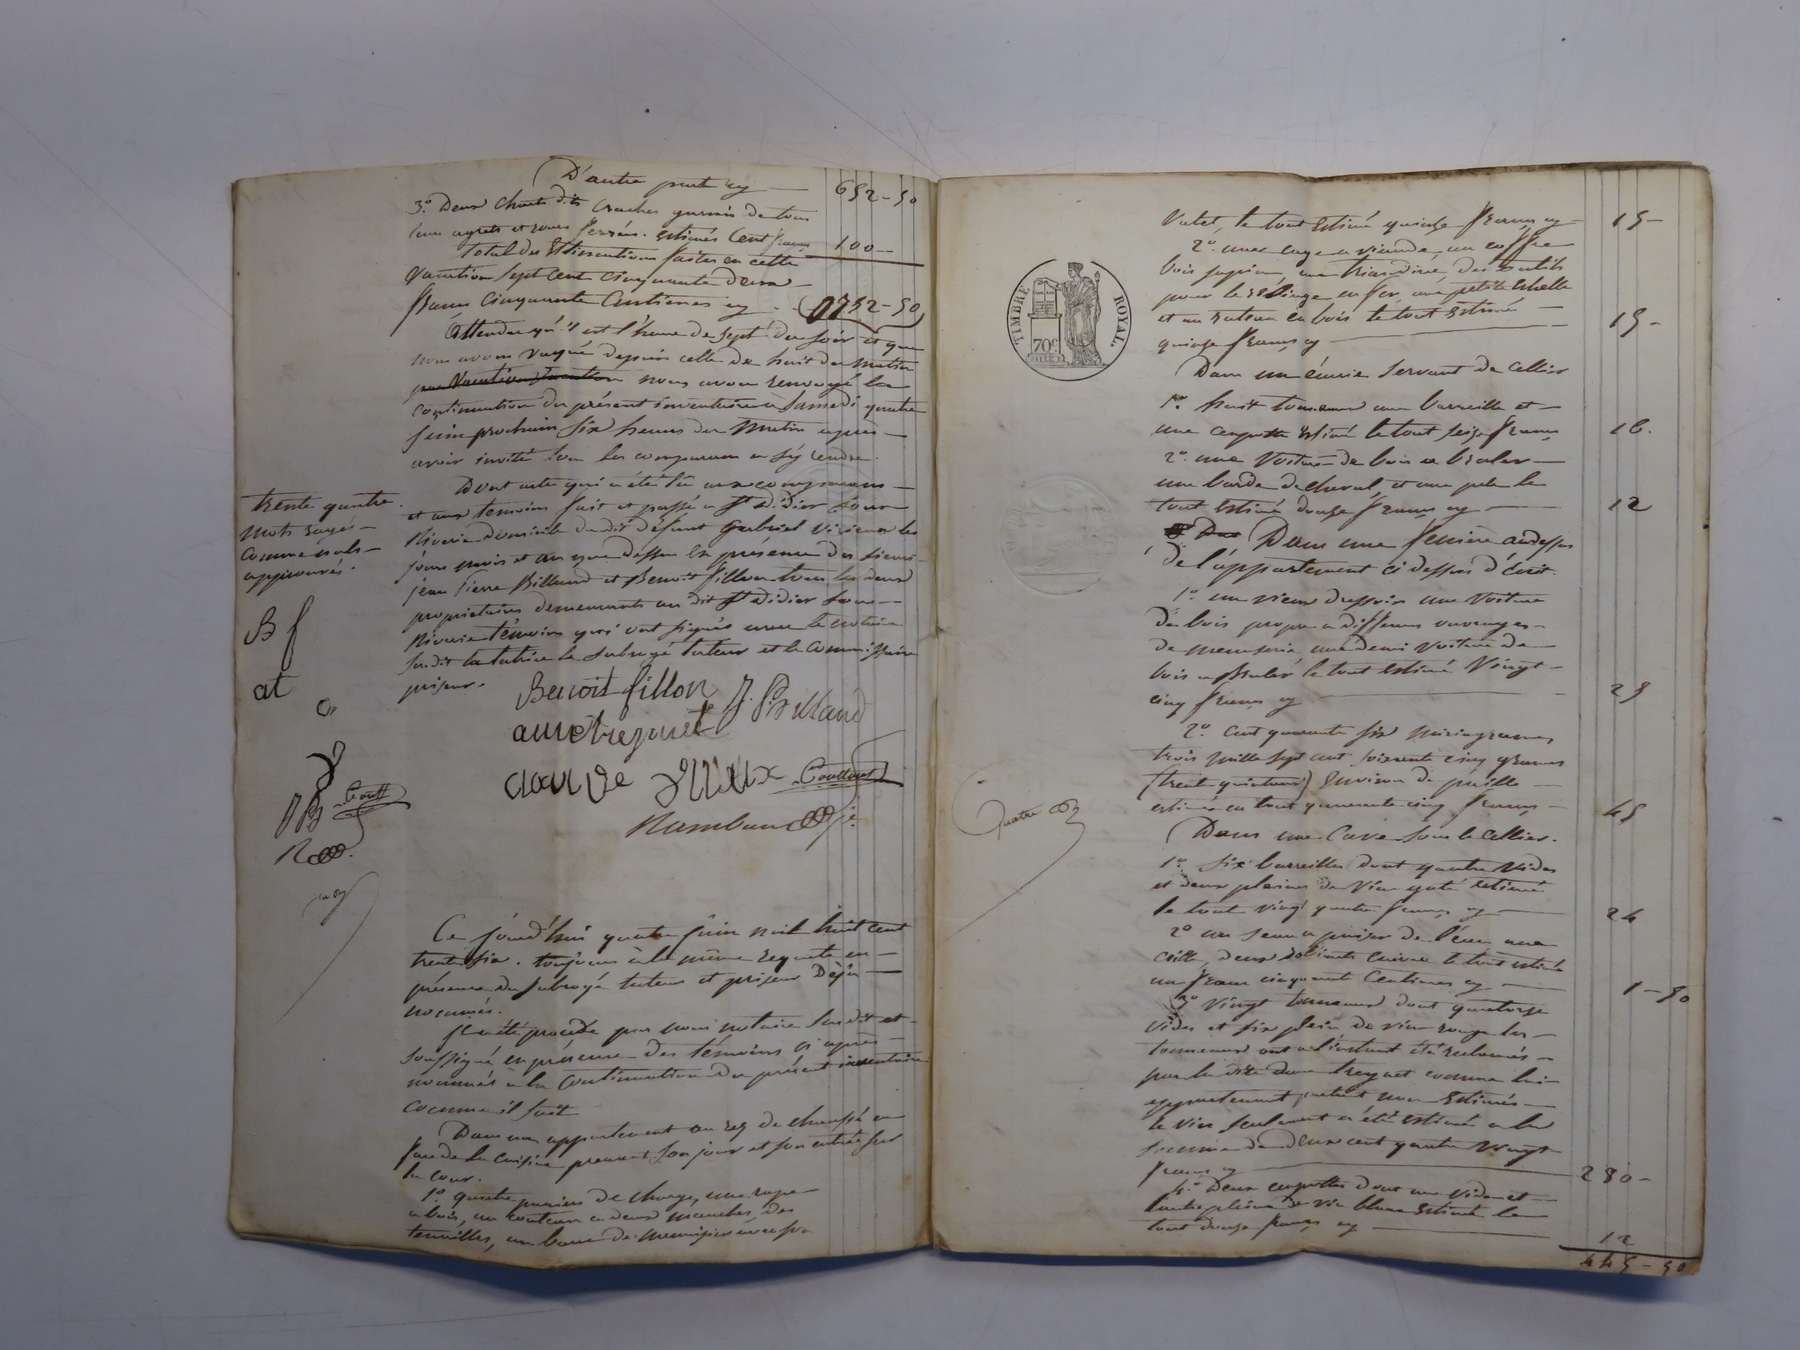 D'autre part cy — 652-50
3.° Deux chars dits Craches garnis de tous
leurs agrets et roues ferrées. estimés Cent francs 100-
Total des Estimations faites en cette
Vacation Sept cent cinquante deux
francs Cinquante Centimes cy . (0752-50)
Attendu qu'il est l'heure de sept du soir et que
nous avons vaqué depuis celle de huit du matin
nous avons renvoyé la
continuation du présent inventaire à Samedi quatre
juin prochain six heures du matin après
avoir invité tous les comparans a s'y rendre.
Dont acte qui a été lu aux comparans
et aux temoins fait et passé a St Didier sous
Riverie domicile du dit défunt Gabriel
jour mois et an que dessus En présence des sieurs
jean Pierre Billaud et Benoit fillon tous les deux
proprietaires demeurants au dit St Didier sous
Riverie témoins qui ont signés avec le notaire
susdit la tutrice le subrogé tuteur et le commissaire
priseur.
trente quatre
mots rayés
comme nuls
approuvés.
B f
at
Benoit fillon J. P. Billaud
Claude
JB
Ce jourd'hui quatre juin mil huit cent
trente six. toujours à la même requete en
présence du subrogé tuteur et priseur Déjà
nommés.
Il a été procédé par nous notaire susdit et
soussigné en présence des témoins ci après
nommés à la Continuation du présent inventaire
comme il suit
Dans un appartement au rez de chaussé en
face de la cuisine prenant son jour et son entrée sur
la cour.
1.° quatre paniers de charge, une
a bois, un couteau a deux manches, des
tenailles, un banc de menuisier avec son
TIMBRE ROYAL.
70c
Valet, le tout estimé quinze francs cy 15-
2.° une cage a viande, un coffre
bois sapin, une des outils
pour le en fer, une petite échelle
et un rateau en bois le tout estimé
quinze francs cy 15-
Dans un écurie servant de Cellier
1.° huit tonneaux une barreille et
une estimé le tout seize francs 16.
2.° une voiture de bois a bruler
une barde de cheval, et une pele le
tout estimé douze francs cy 12
Dans une fenière audessus
de l'appartement ci dessus d'écrit.
1.° un vieux dressoir une voiture
de bois propre a differens ouvrages
de menuserie une demi voiture de
bois a bruler le tout estimé Vingt
cinq francs cy 25
2.° cent quarante six miriagrames
trois mille sept cent soixante cinq grames
(trente quintaux) Environ de paille
estimés en tout quarante cinq francs 45
Quatre
Dans une Cave sous le Cellier.
1.° six barreilles dont quatre vides
et deux pleines de vin gaté estimé
le tout vingt quatre francs cy 24
2.° un seau a puiser de l'eau une
deux cuivre le tout estimé
un franc cinquante Centimes cy 1-50
3.° Vingt tonneaux dont quatorze
vides et six plein de vin rouge les
tonneaux ont a l'instant été reclamés
par la dite dame comme lui
appartenant partant non Estimés
le vin seulement a été estimé a la
somme de deux cent quatre vingt
francs cy 280-
4.° Deux dont une vide et
l'autre pleine de vin blanc estimé le
tout douze francs cy 12
445-50